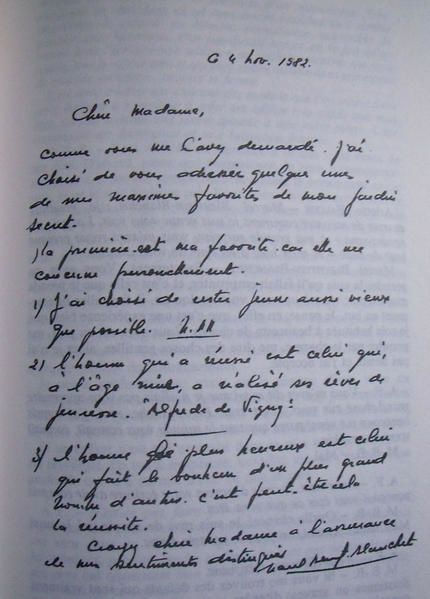 4 nov. 1982.
Chère Madame,
comme vous me l'avez demandé. j'ai
choisi de vous adresser quelque unes
de mes maximes favorites de mon jardin
secret.
) la première est ma favorite car elle me
concerne personnellement.
1) J'ai choisi de rester jeune aussi vieux
que possible.
2) l'homme qui a réussi est celui qui,
à l'âge mûr, a réalisé ses rêves de
jeunesse. "Alfred de Vigny"
3) l'homme le plus heureux est celui
qui fait le bonheur d'un plus grand
nombre d'autres. c'est peut-être cela
la réussite.
Croyez chère madame à l'assurance
de mes sentiments distingués